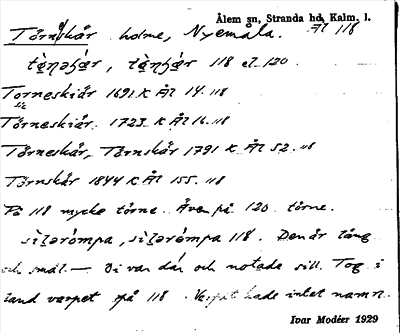 Ålem sn, Stranda hd, Kalm. l.
Törnskär holme, Nyemåla. Ål 118
118 el. 120.
Torneskiär 1691 K Ål 14. 118
sic
Törneskiär 1723 K Ål 16. 118
Törneskär, Törnskär 1791 K Ål 52. 118
Törnskär 1844 K Ål 155. 118
På 118 mycke törne. Även på 120 törne.
118. Den är lång
och smal. — Di va där och notade sill. Tog i
land varpet på 118. Varpet hade intet namn.
Ivar Modéer 1929